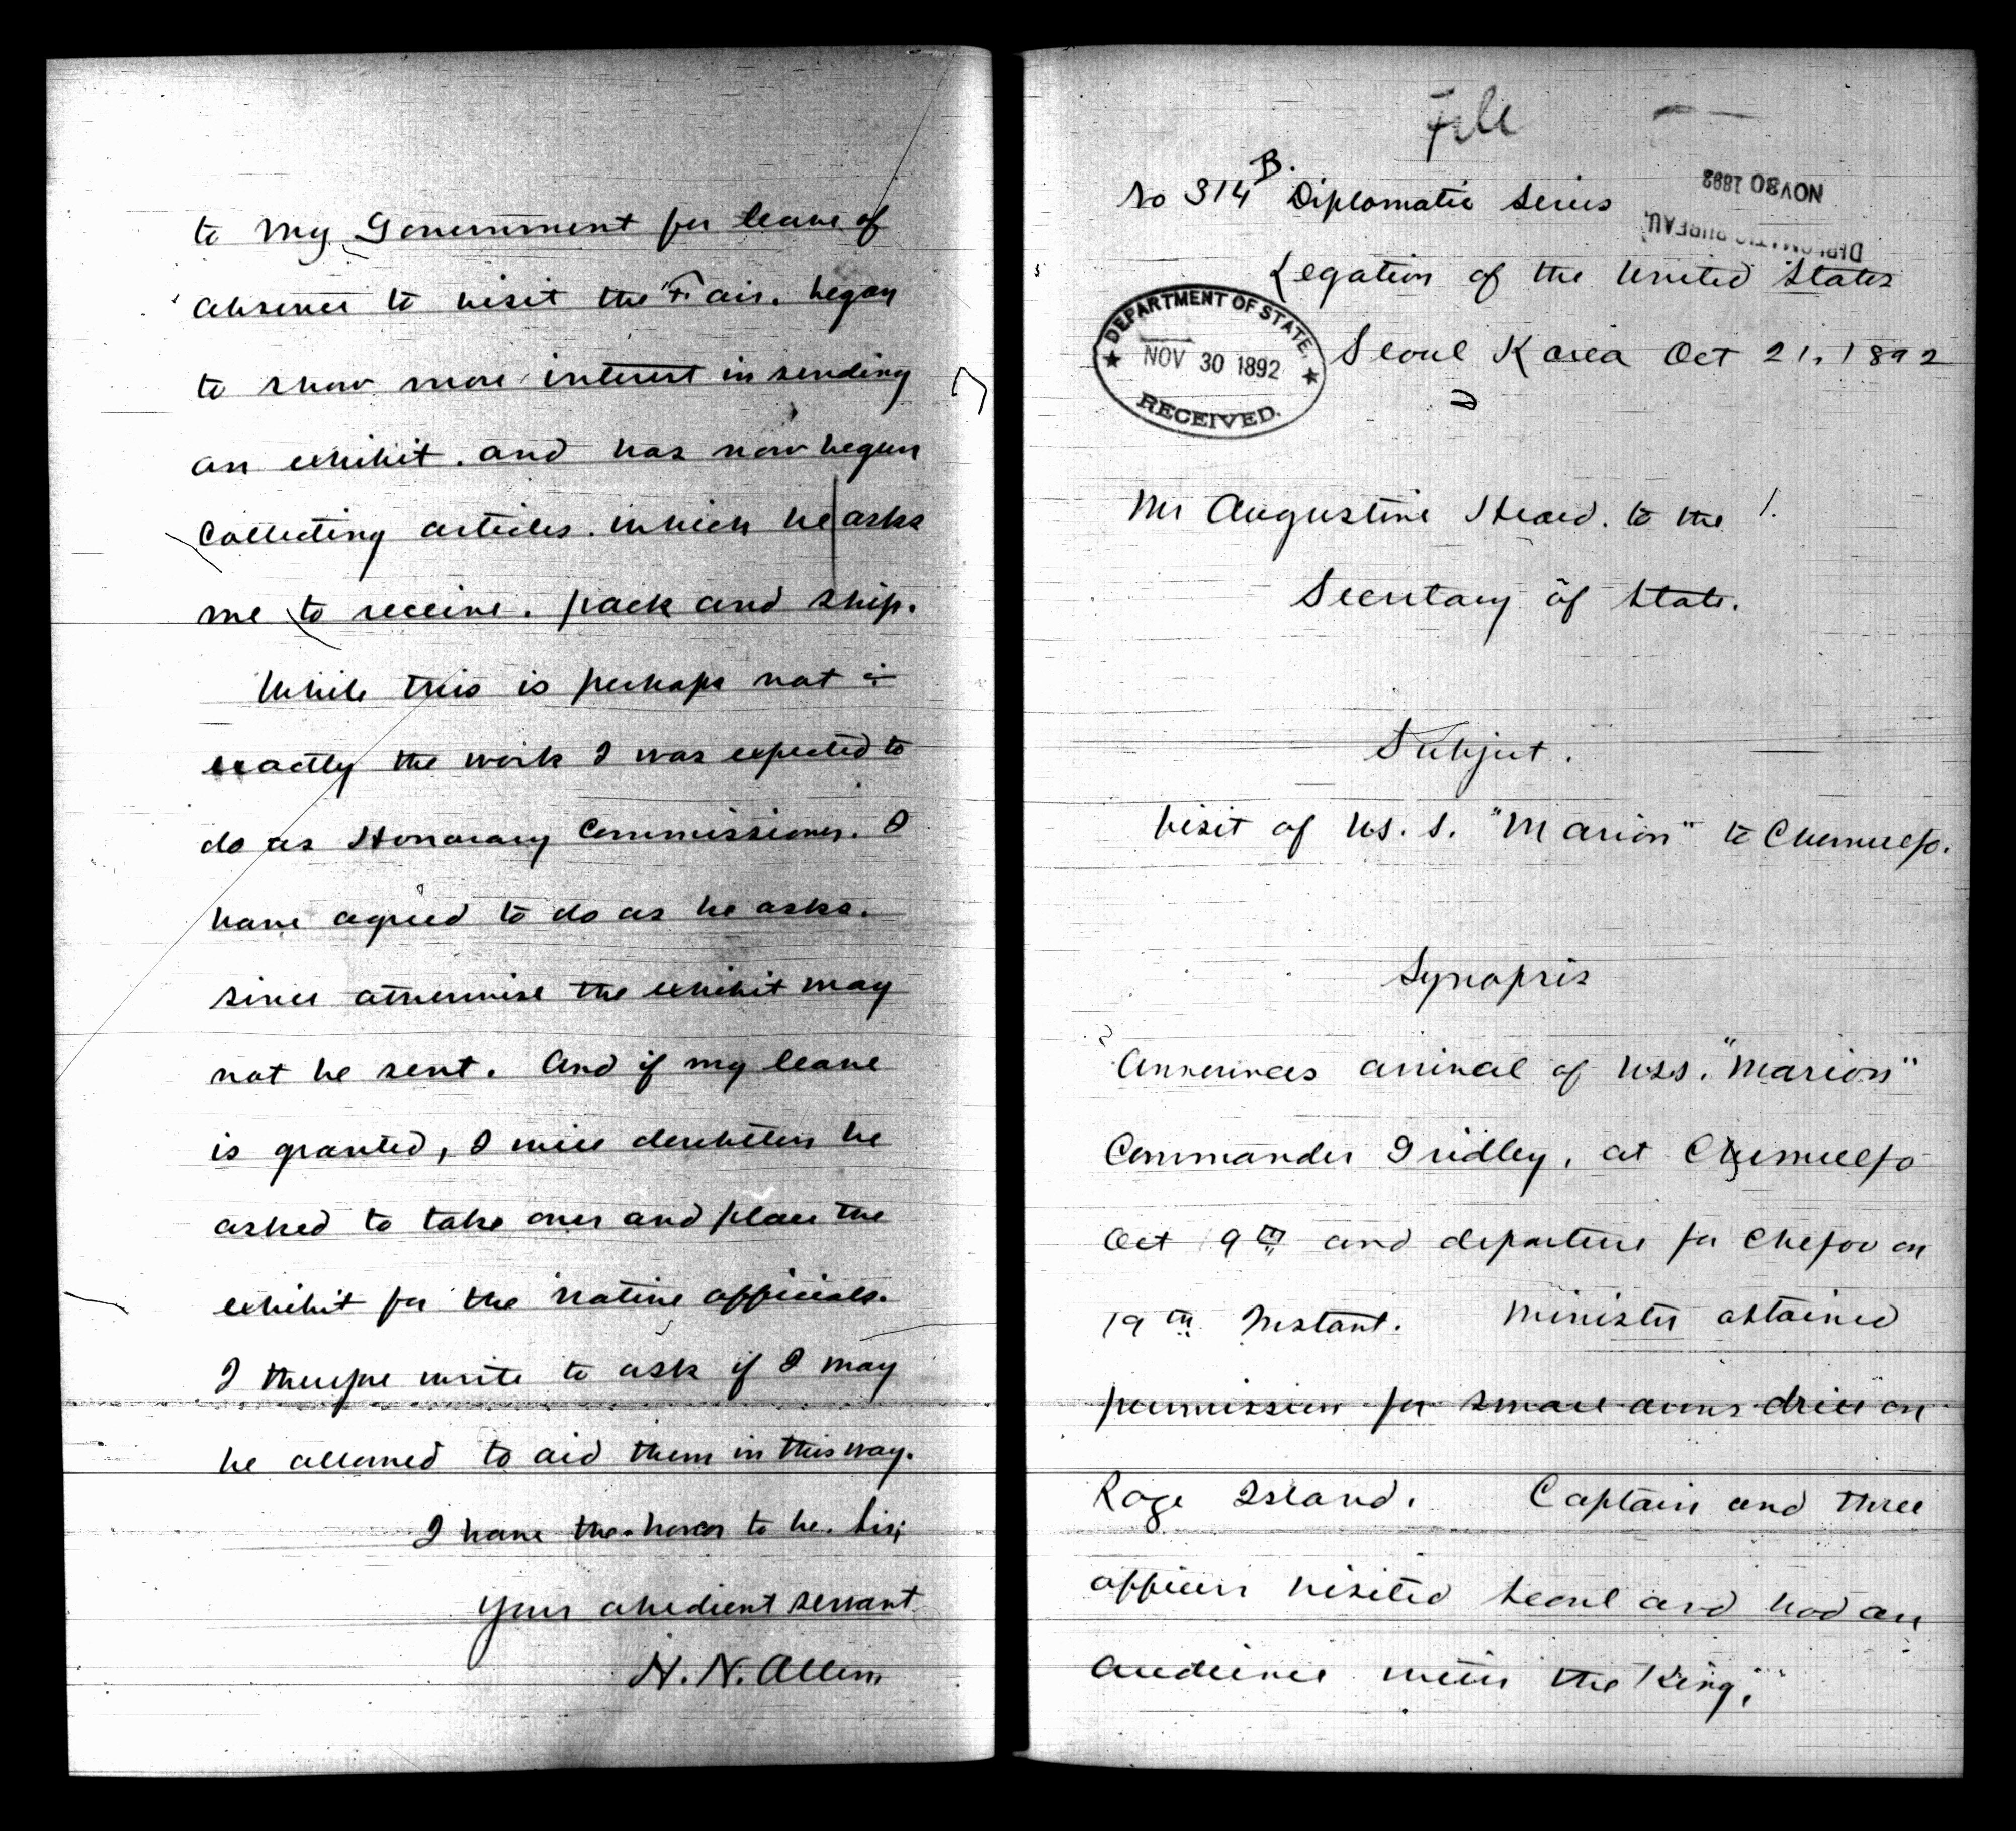 to my Government for leave of
absence to visit the Fair. began
to show more interest in sending
an exhibit. and has now begun
collecting articles. which he asks
me to receive. pack and ship.
While this is perhaps not
exactly the work I was expected to
do as Honorary Commissioner. I
have agreed to do as he asks.
since otherwise the exhibit may
not be sent. And if my leave
is granted, I will doubtless be
asked to take over and place the
exhibit for the native officials.
I therefore write to ask if I may
be allowed to aid them in this way.
I have the honor to be. Sir;
Your obedient servant
H. N. Allen,
File
No 314 B. Diplomatic Series
DIPLOMATIC BUREAU,
NOV 30 1892
Legation of the United States
DEPARTMENT OF STATE,
NOV 30 1892
RECEIVED.
Seoul Korea Oct 21, 1892
Mr Augustine Heard. to the
Secretary of State.
Subject.
Visit of U.S. S. "Marion" to Chemulpo.
Synopsis
Announces arrival of U.S.S. "Marion"
Commander Gridley, at Chemulpo
Oct 9th and departure for Chefoo on
19th Instant. Minister obtained
permission for small arms drill on
Roze Island. Captain and three
officers visited Seoul and had an
audience with the King.